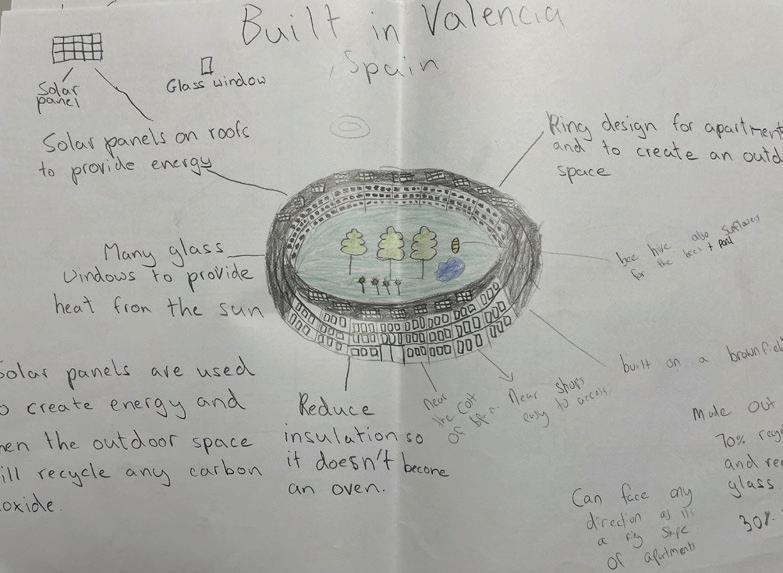 Built in Valencia
Spain
Solar
panel
Glass window
Solar panels on roofs
to provide energy
Ring design for apartment
and to create an outd
space
bee hive also sunflowers
for the bees + pond
Many glass
windows to provide
heat from the sun
built on a brownfield
near
the
of
Near shops
easy to access.
Reduce
insulation so
it doesn't become
an oven.
Solar panels are used
o create energy and
hen the outdoor space
ill recycle any carbon
oxide.
Made out
70% recy
and rec
glass
30%
Can face any
direction as its
a ring
of apartments